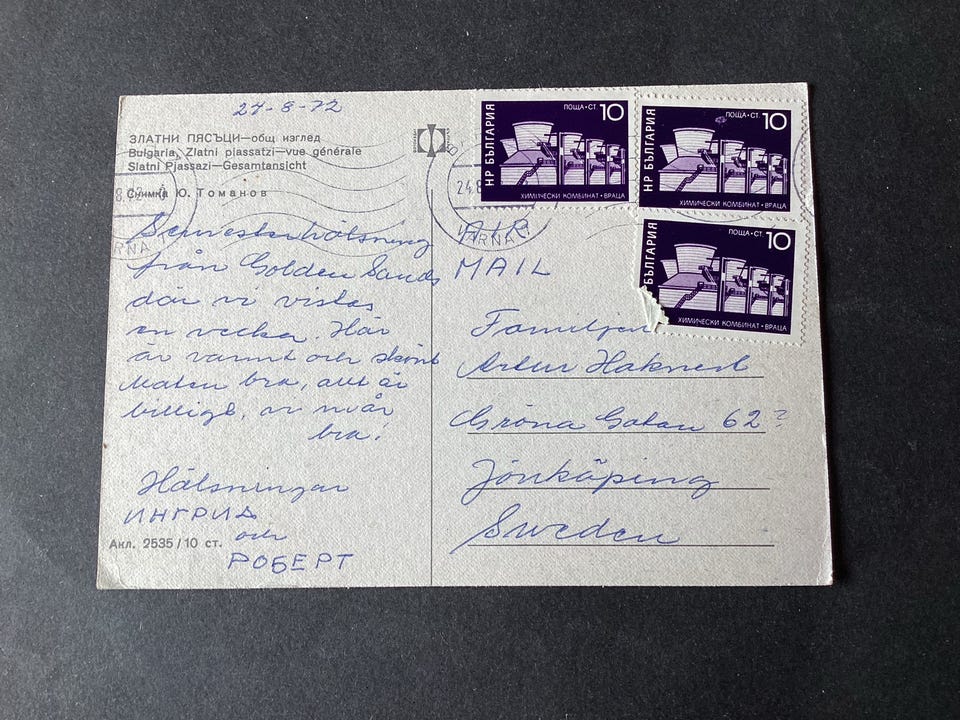 24-8-72
ЗЛАТНИ ПЯСЪЦИ—общ изглед
Bulgaria, Zlatni piassatzi—vue générale
Slatni Pjassazi—Gesamtansicht
Снимка Ю. Томанов
Semesterhälsning
från Golden Sands
där vi vistas
en vecka. Här
är varmt och skönt
Maten bra, allt är
billigt, vi mår
bra!
Hälsningar
ИНГРИД
och
РОБЕРТ
Акл. 2535/10 ст.
НР БЪЛГАРИЯ
ПОЩА·СТ. 10
ХИМИЧЕСКИ КОМБИНАТ·ВРАЦА
НР БЪЛГАРИЯ
ПОЩА·СТ. 10
ХИМИЧЕСКИ КОМБИНАТ·ВРАЦА
БЪЛГАРИЯ
ПОЩА·СТ. 10
ХИМИЧЕСКИ КОМБИНАТ·ВРАЦА
24.8
VARNA
AIR
MAIL
Familjen
Artur
Gröna Gatan 62?
Jönköping
Sweden